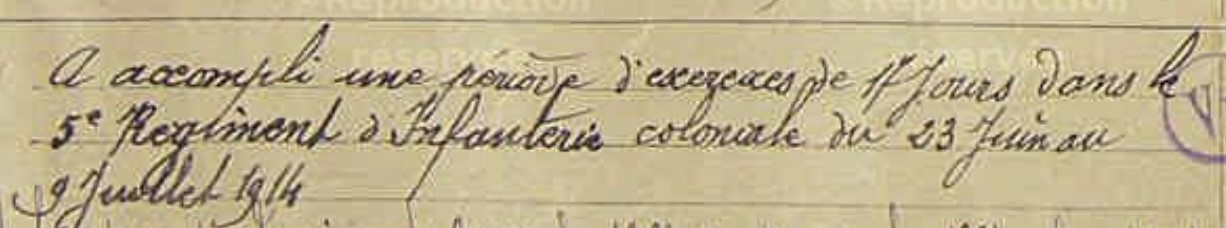 ©Reproduction
©Reproduction
réservée
réservée
A accompli une période d'exercices de 17 Jours dans le
5e Regiment d'Infanterie coloniale du 23 Juin au
9 Juillet 1914